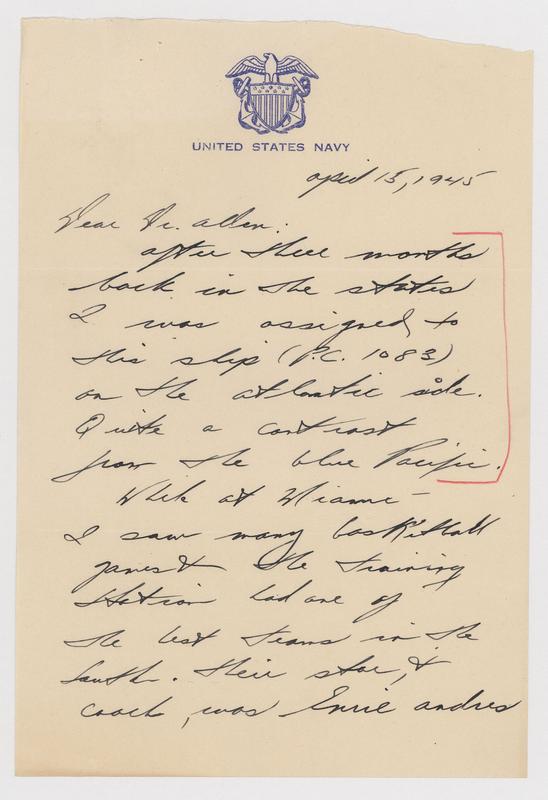 UNITED STATES NAVY
April 15, 1945
Dear Dr. Allen:
After three months
back in the states
I was assigned to
this ship (P.C. 1083)
on the Atlantic side.
Quite a contrast
from the blue Pacific.
While at Miami –
I saw many basketball
games & the training
station had one of
the best teams in the
South. Their star, &
coach, was Ernie Andres